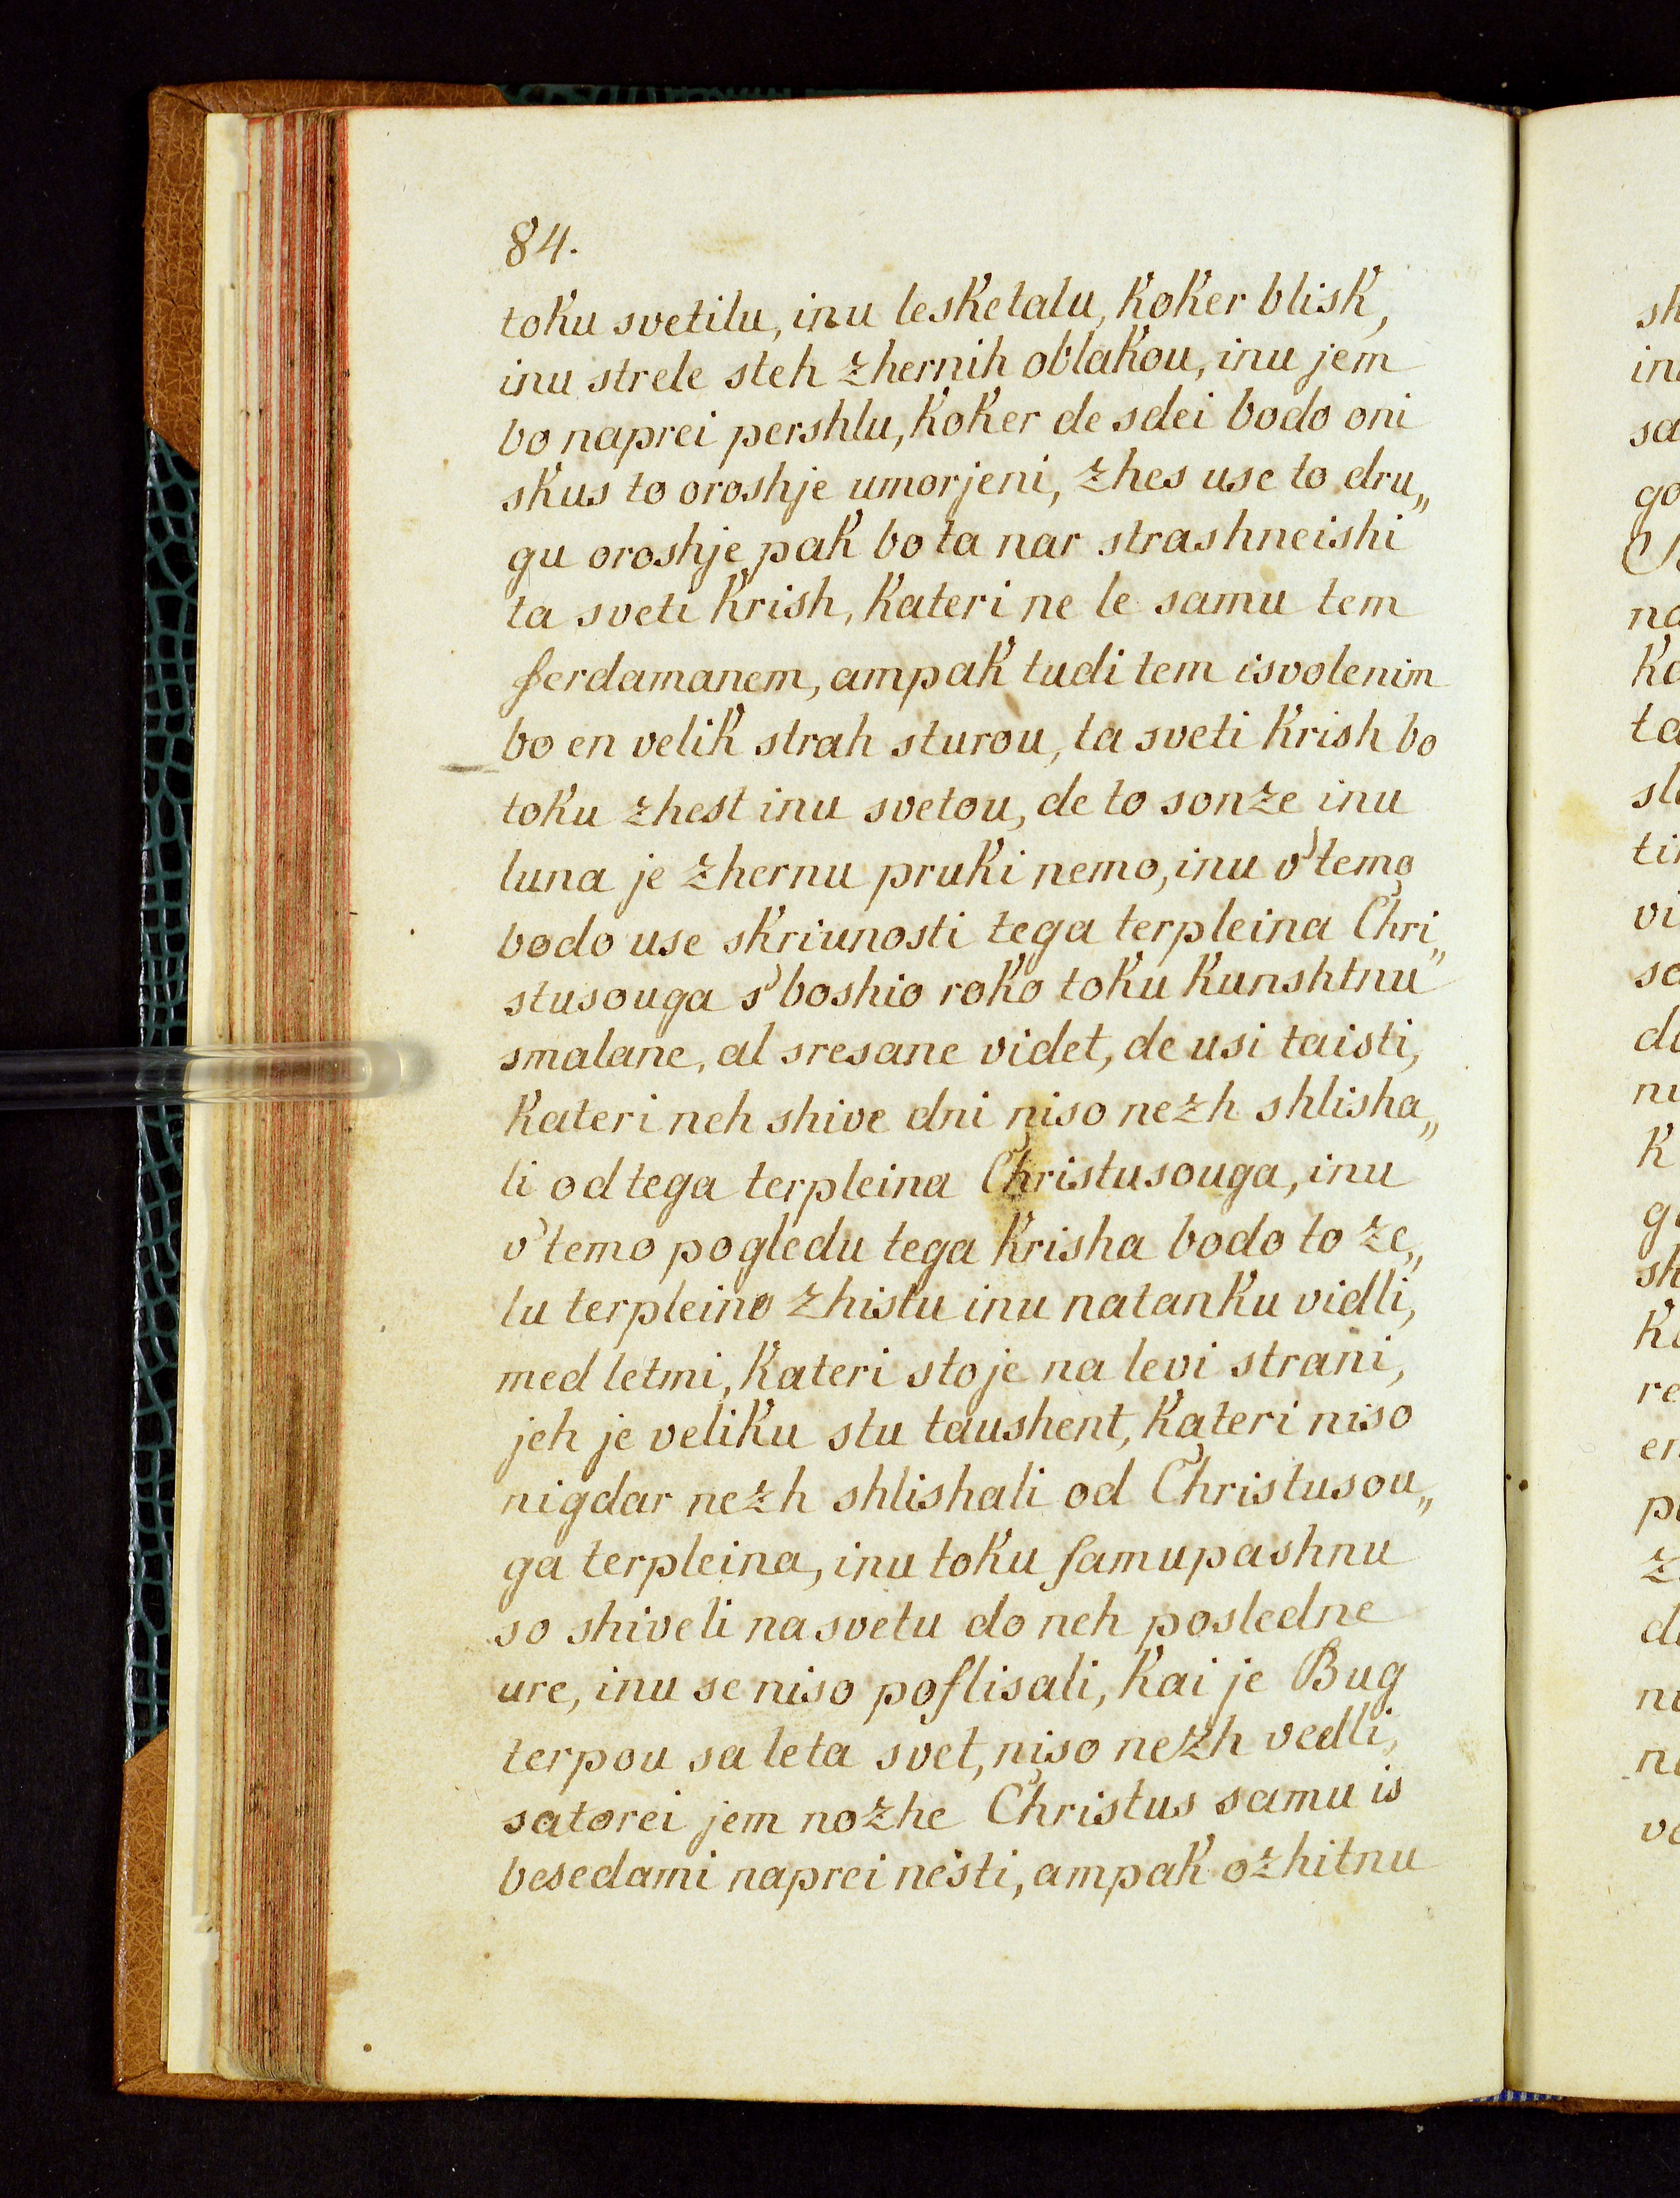 84.
toku svetilu, inu lesketalu, koker blisk,
inu strele steh zhernih oblakou, inu jem
bo naprei pershlu, koker de sdei bodo oni
skus to oroshje umorjeni, zhes use to dru„
gu oroshje pak bo ta nar strashneishi
ta sveti krish, kateri ne le samu tem
ferdamanem, ampak tudi tem isvolenim
bo en velik strah sturou, ta sveti krish bo
toku zhest inu svetou, de to sonze inu
luna je zhernu pruki nemo, inu v'temo
bodo use skriunosti tega terpleina Chri„
stusouga s'boshio roko toku kunshtnu
smalane, al sresane videt, de usi taisti,
kateri neh shive dni niso nezh shlisha„
li od tega terpleina Christusouga, inu
v'temo pogledu tega krisha bodo to ze„
lu terpleino zhistu inu natanku vidli,
med letmi, kateri stoje na levi strani,
jeh je veliku stu taushent, kateri niso
nigdar nezh shlishali od Christusou„
ga terpleina, inu toku samupashnu
so shiveli na svetu do neh posledne
ure, inu se niso poflisali, kai je Bug
terpou sa leta svet, niso nezh vedli,
satorei jem nozhe Christus samu is
besedami naprei nesti, ampak ozhitnu